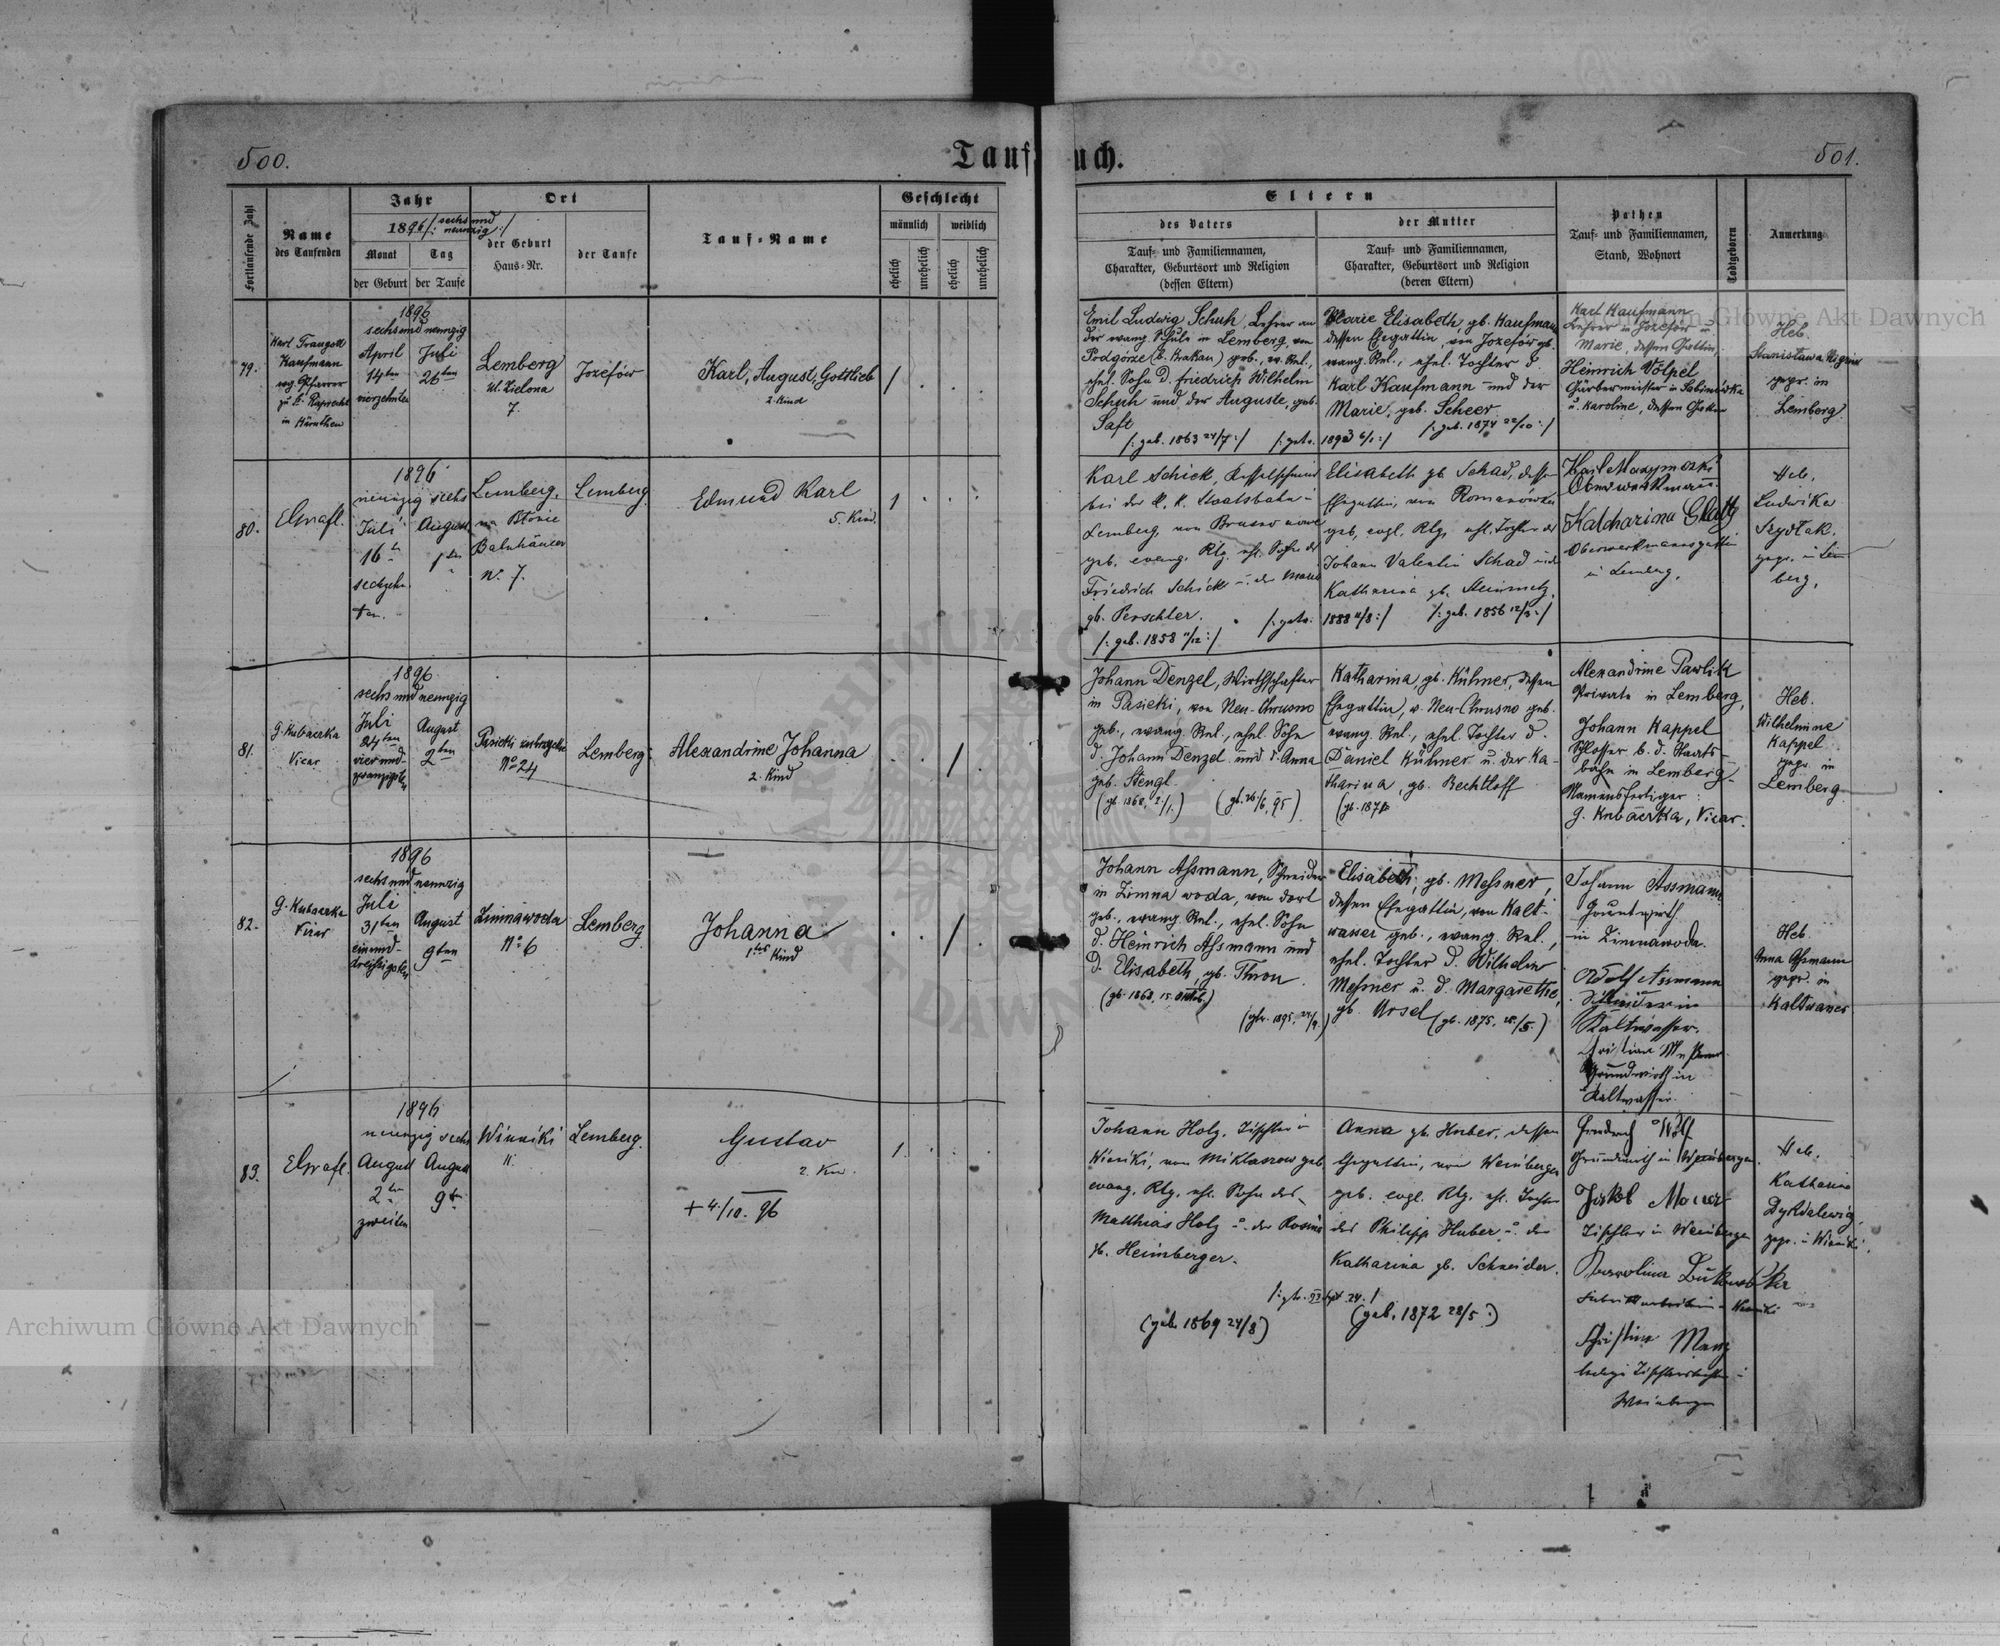 500.
Taufbuch.
501.
Fortlaufende Zahl
Name
des Taufenden
Jahr
1896 /: sechs und neunzig :/
Monat
Tag
der Geburt
der Taufe
Ort
der Geburt
Haus-Nr.
der Taufe
Tauf-Name
Geschlecht
männlich
weiblich
ehelich
unehelich
ehelich
unehelich
Eltern
des Vaters
Tauf- und Familiennamen,
Charakter, Geburtsort und Religion
(dessen Eltern)
der Mutter
Tauf- und Familiennamen,
Charakter, Geburtsort und Religion
(deren Eltern)
Pathen
Tauf- und Familiennamen,
Stand, Wohnort
Todtgeboren
Anmerkung
79.
Karl Traugott
Kaufmann
evg. Pfarrer
zu St. Ruprecht
in Kärnthen
1896
sechs und neunzig
April
14ten
vierzehnten
Juli
26ten
Lemberg
ul. Zielona
7.
Józefów
Karl, August, Gottlieb
2. Kind
/
Emil Ludwig Schuh, Lehrer an
der evang. Schule in Lemberg, von
Podgórze (b. Krakau) geb., ev. Rel.,
ehel. Sohn d. Friedrich Wilhelm
Schuh und der Auguste, geb.
Saft
/: geb. 1863 24/7 :/
/: getr. 1893 6/1 :/
Marie Elisabeth gb. Kaufmann
dessen Ehegattin, von Józefów gb.
evang. Rel., ehel. Tochter d.
Karl Kaufmann und der
Marie, geb. Scheer
/: geb. 1874 22/10 :/
Karl Kaufmann
Lehrer in Józefów u.
Marie, dessen Gattin,
Heinrich Völpel
u. Karoline, dessen Gattin
Heb.
Stanisława
gepr. in
Lemberg
80.
1896
neunzig sechs
Juli
16t
sechzehn
ten.
August
1ten
Lemberg,
na Błonie
Bahnhäuser
N. 7.
Lemberg
Edmund Karl
5. Kind.
1
Karl Schick, Kesselschmied
bei der k. k. Staatsbahn in
Lemberg, von Brusno nowe
geb. evang. Rlg. ehl. Sohn des
Friedrich Schick u. der Maria
gb. Perschler.
/: geb. 1858 11/12 :/
/: getr. 1888 11/8 :/
Elisabeth gb Schad, dessen
Ehegattin, von Romanówka
geb, evgl. Rlg, ehl. Tochter des
Johann Valentin Schad und
Katharina gb. Steinmetz,
/: geb. 1856 12/3 :/
Oberwerkmann.
Katharina Glatz
Oberwerkmannsgattin
in Lemberg,
Heb,
Ludwika
Szydłak,
gepr. in Lem
berg,
81.
G. Kubaczka
Vicar
1896
sechs und neunzig
Juli
24ten
vier und
zwanzigsten
August
2ten
Pasieki
No 24
Lemberg
Alexandrine Johanna
2. Kind
/
Johann Denzel, Wirthschafter
in Pasieki, von Neu-Chrusno
geb., evang. Rel., ehel. Sohn
d. Johann Denzel und d. Anna
geb. Stengl
(gb. 1868, 2/1.)
(gtr. 26/6, 95)
Katharina gb. Kühner, dessen
Ehegattin, v. Neu-Chrusno geb.
evang. Rel., ehel. Tochter d.
Daniel Kühner u. der Ka-
tharina, gb. Bechtloff
Alexandrine Pawlik
Private in Lemberg,
Johann Kappel
Schlosser b. d. Staats-
bahn in Lemberg.
Namensfertiger:
G. Kubaczka, Vicar.
Heb.
Wilhelmine
Kappel
gepr. in
Lemberg
82.
G. Kubaczka
Vicar
1896
sechs und neunzig
Juli
31ten
einund-
dreißigsten
August
9ten
Zimnawoda
No 6
Lemberg
Johanna
1tes Kind
/
Johann Aßmann, Schneider
in Zimna woda, von dort
geb., evang. Rel., ehel. Sohn
d. Heinrich Aßmann und
d. Elisabeth, gb. Thron.
(gb. 1868, 15. Oktob.)
Elisabeth, gb. Meßner,
dessen Ehegattin, von Kalt-
wasser geb., evang. Rel.,
ehel. Tochter d. Wilhelm
Meßner u. d. Margarethe,
gb. Ursel
(gb. 1875. 28./5.)
Johann Assmann
Grundwirth
in Zimnawoda.
Adolf Assmann
Schneider in
Kaltwasser.
Grundwirth in
Kaltwasser.
Heb.
Anna Aßmann
gepr. in
Kaltwasser
83.
1896
neunzig sechs
August
2ter
zweiten
August
9t
Winniki
Lemberg.
Gustav
2. Kind.
+ 4./10. 96
1.
Johann Holz, Tischler in
Winniki, von Miklaszow geb,
evang. Rlg. ehl. Sohn des
Matthias Holz u. der Rosina
gb. Heimberger.
(geb. 1869 24/8)
Anna gb. Huber, dessen
Ehegattin, von Weinbergen
geb. evgl. Rlg. ehl. Tochter
des Philipp Huber u. der
Katharina gb. Schneider.
(geb. 1872 28/5.)
Grundwirth in Weinbergen
Jakob Mauer
Tischler in Weinbergen
Karolina
Christine Manz
Weinbergen
Heb.
Katharina
gepr. in Winniki.
Archiwum Główne Akt Dawnych
Archiwum Główne Akt Dawnych